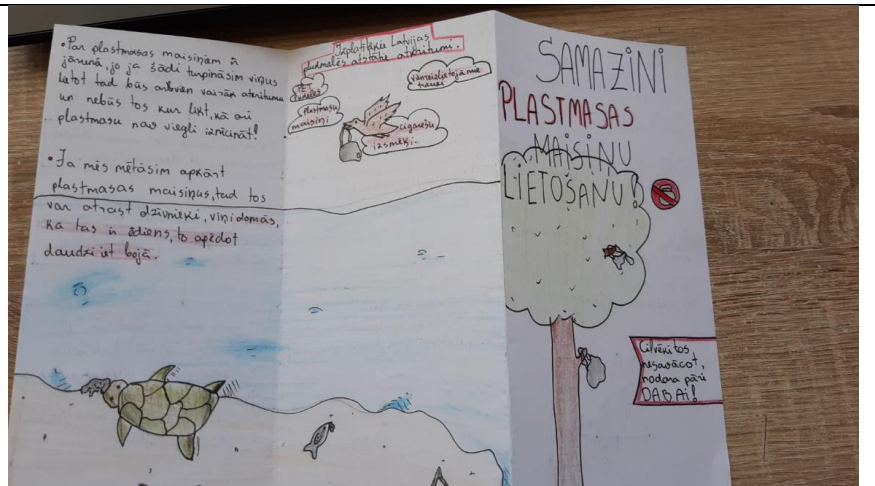 • Par plastmasas maisiņiem ir
jārunā, jo ja šādi turpināsim viņus
lietot tad būs arvien vairāk atkritumu
un nebūs tos kur likt, kā arī
plastmasu nav viegli iznīcināt!
• Ja mēs mētāsim apkārt
plastmasas maisiņus, tad tos
var atrast dzīvnieki, viņi domās,
ka tas ir ēdiens, to apēdot
daudzi iet bojā.
Izplatītākie Latvijas
pludmalēs atstātie atkritumi.
PET
pudeles
plastmasu
maisiņi
vienreizlietojamie
trauki
cigarešu
izsmēķi.
SAMAZINI
PLASTMASAS
MAISIŅU
LIETOŠANU!
Cilvēki tos
nesavācot,
nodara pāri
DABAI!